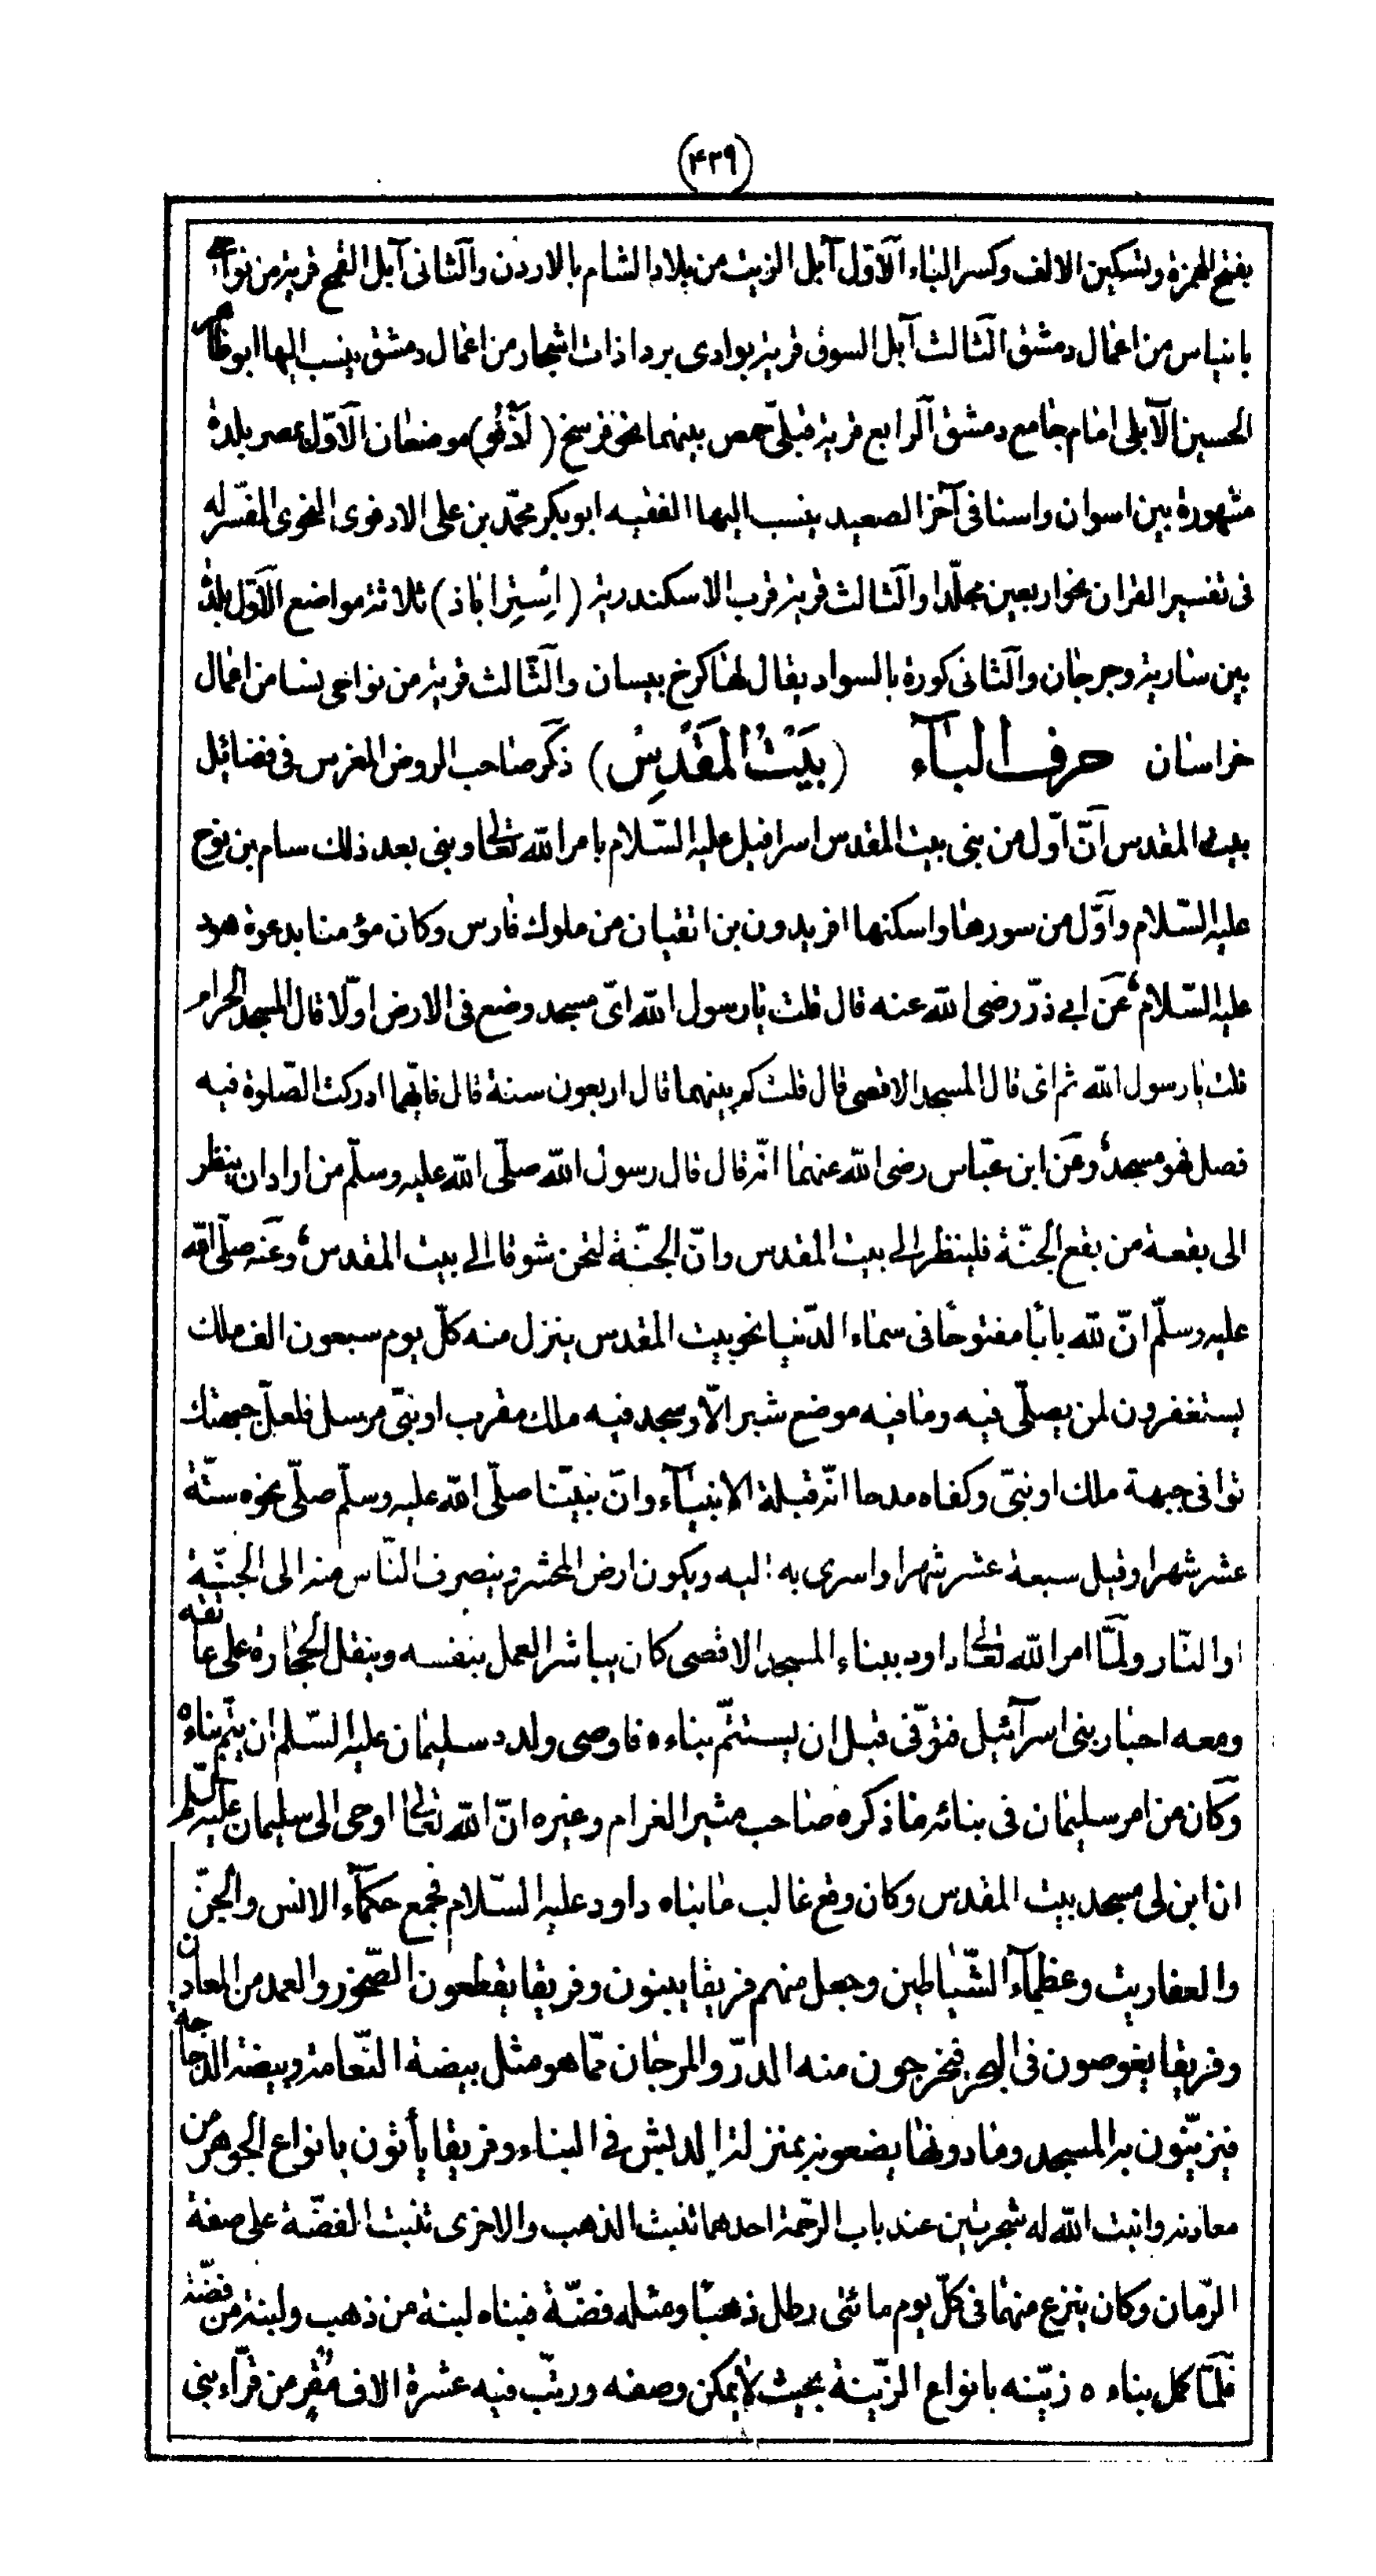 (٤٣٩)
بفتح الهمزة وتسكين الالف وكسر الباء الاوّل آبل الزيت من بلاد الشام بالاردن والثانى آبل القمح قرية من نواحى
بانياس من اعمال دمشق الثالث آبل السوق قرية بوادى بردا ذات اشجار من اعمال دمشق ينسب اليها ابو طاهر
الحسين الآبلى امام جامع دمشق الرابع قرية قبلىّ حمص بينهما نحو فرسخ (اَدْفُو) موضعان الاوّل بمصر بلدة
مشهورة بين اسوان واسنا فى آخر الصعيد ينسب اليها الفقيه ابو بكر محمّد بن على الادفوى النحوى المفسّر له
فى تفسير القران نحو اربعين مجلّدا والثالث قرية قرب الاسكندرية (اِسْتِراباذ) ثلاثة مواضع الاوّل بلدة
بين سارية وجرجان والثانى كورة بالسواد يقال لها كرخ بيسان والثّالث قرية من نواحى نسا من اعمال
خراسان حرف البآء (بَيْتُ المَقْدِسْ) ذكر صاحب الروض المغرس فى فضائل
بيت المقدس انّ اوّل من بنى بيت المقدس اسرافيل عليه السّلام بامر الله تعالى وبنى بعد ذلك سام بن نوح
عليه السّلام واوّل من سورها واسكنها افريدون بن اثقيان من ملوك فارس وكان مؤمنا بدعوة هود
عليه السّلام عن ابى ذرّ رضى الله عنه قال قلت يا رسول الله اىّ مسجد وضع فى الارض اوّلا قال المسجد الحرام
قلت يا رسول الله ثم اى قال المسجد الاقصى قال قلت كم بينهما قال اربعون سنة قال فاينما ادركت الصّلوة فيه
فصل فهو مسجد وعن ابن عبّاس رضى الله عنهما انّه قال قال رسول الله صلّى الله عليه وسلّم من اراد ان ينظر
الى بقعة من بقع الجنّة فلينظر الى بيت المقدس وانّ الجنّة لتحن شوقا الى بيت المقدس وعنه صلّى الله
عليه وسلّم انّ لله بابا مفتوحا فى سماء الدّنيا نحو بيت المقدس ينزل منه كلّ يوم سبعون الف ملك
يستغفرون لمن يصلّى فيه وما فيه موضع شبر الّا وسجد فيه ملك مقرب او نبىّ مرسل فلعلّ جبهتك
توافى جبهة ملك او نبىّ وكفاه مدحا انّه قبلة الانبيآء وانّ نبيّنا صلّى الله عليه وسلّم صلّى نحوه ستّة
عشر شهرا وقيل سبعة عشر شهرا واسرى به اليه ويكون ارض المحشر وينصرف النّاس منه الى الجنّة
او النّار ولمّا امر الله تعالى داود ببناء المسجد الاقصى كان يباشر العمل بنفسه وينقل الحجارة على عاتقه
ومعه احبار بنى اسرآئيل فتوّفى قبل ان يستتمّ بناءه فاوصى ولده سليمان عليه السّلم ان يتمّ بناءه
وكان من امر سليمان فى بنائه ما ذكره صاحب مثير الغرام وغيره انّ الله تعالى اوحى الى سليمان عليه السّلم
ان ابن لى مسجد بيت المقدس وكان وقع غالب ما بناه داود عليه السّلام فجمع حكمآء الانس والجنّ
والعفاريت وعظمآء الشّياطين وجعل منهم فريقا يبنون وفريقا يقطعون الصّخور والعمد من المعادن
وفريقا يغوصون فى البحر فيخرجون منه الدرّ والمرجان ممّا هو مثل بيضة النّعامة وبيضة الدجاجة
فيزيّنون به المسجد وما دونها يضعونه بمنزلة الدبش فى البناء وفريقا يأتون بانواع الجوهر من
معادنه وانبت الله له شجرتين عند باب الرّحمة احدهما تنبت الذهب والاخرى تنبت الفضّة على صفة
الرّمان وكان ينزع منهما فى كلّ يوم مائتى رطل ذهبا ومثله فضّة فبناه لبنة من ذهب ولبنة من فضّة
فلمّا كمل بناءه زيّنه بانواع الزّينة بحيث لا يمكن وصفه ورتّب فيه عشرة الاف مُقرِء من قرّاء بنى